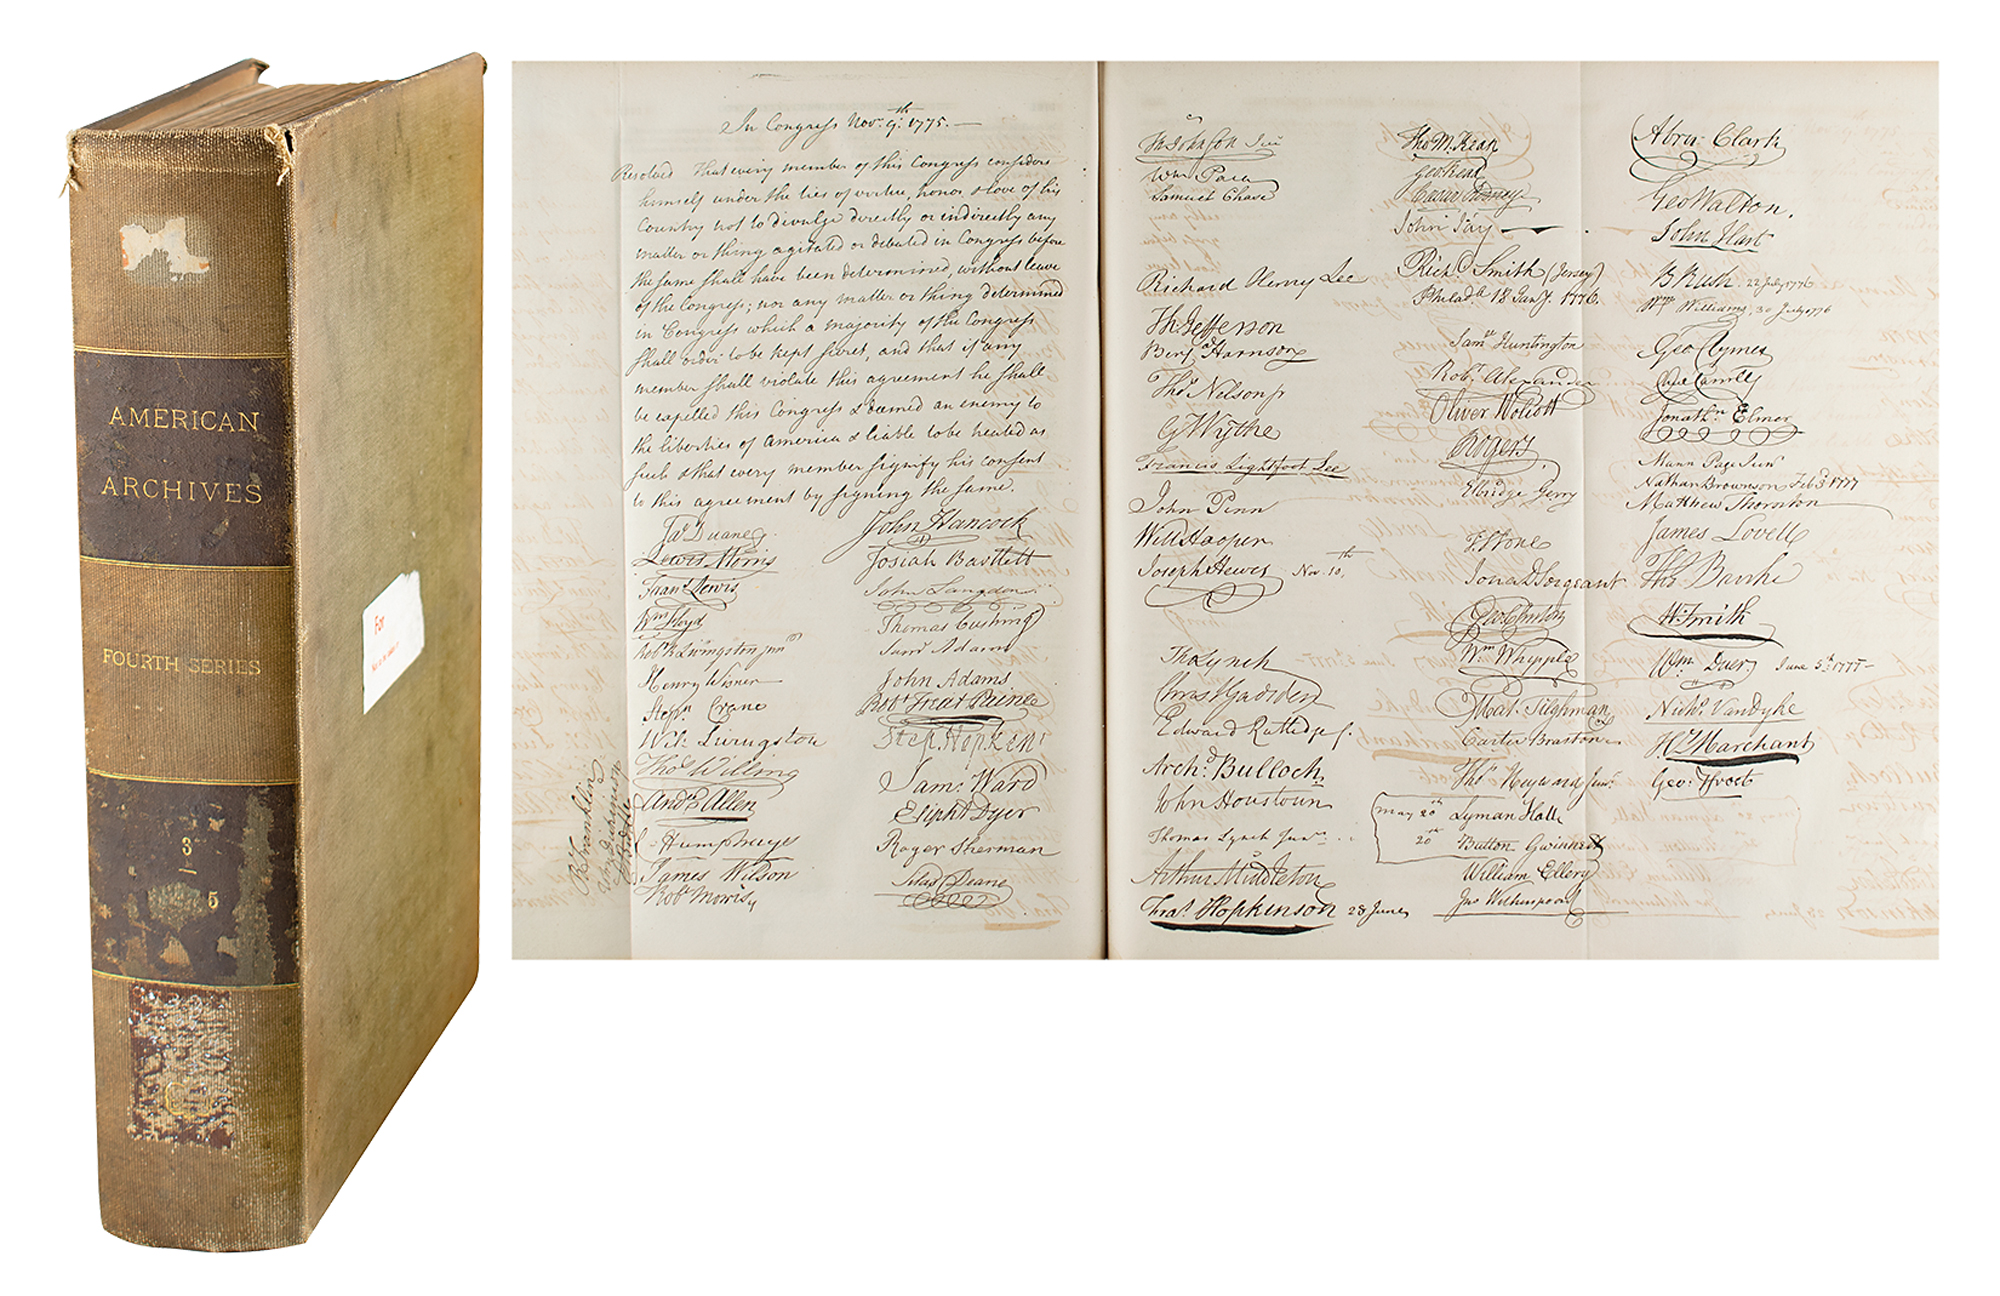 AMERICAN
ARCHIVES
FOURTH SERIES
3
5
For
In Congress Nov.r 9.th 1775.—
Resolved That every member of this Congress considers
himself under the ties of virtue, honor & love of his
Country not to divulge directly or indirectly any
matter or thing agitated or debated in Congress before
the same shall have been determined, without leave
of the Congress; nor any matter or thing determined
in Congress which a majority of the Congress
shall order to be kept secret, and that if any
member shall violate this agreement he shall
be expelled this Congress & deemed an enemy to
the liberties of America & liable to be treated as
such & that every member signify his consent
to this agreement by signing the same.
Jas Duane
Lewis Morris
Frans Lewis
Wm Floyd
Robt R Livingston junr
Henry Wisner
Stepn Crane
Wil: Livingston
Thos Willing
Andw Allen
C Humphreys
James Wilson
Robt Morris
B Franklin
John Hancock
Josiah Bartlett
John Langdon
Thomas Cushing
Saml Adams
John Adams
Robt Treat Paine
Step. Hopkins
Sam: Ward
Elipht Dyer
Roger Sherman
Silas Deane
Ths Johnson Jun
Wm Paca
Samuel Chase
Richard Henry Lee
Th: Jefferson
Benja Harrison
Thos Nelson jr
G Wythe
Francis Lightfoot Lee
John Penn
Will Hooper
Joseph Hewes Nov. 10th
Tho Lynch
Christ Gadsden
Edward Rutledge
Archd Bulloch
John Houstoun
Thomas Lynch Junr
Arthur Middleton
Fras. Hopkinson 28 June
Tho M:Kean
Geo Read
Caesar Rodney
John Jay
Richd Smith (Jersey)
Philada 18 Jany. 1776.
Saml Huntington
Robt Alexander
Oliver Wolcott
Rogers
Elbridge Gerry
T. Stone
Jona D Sergeant
Geo Clinton
Wm Whipple
Mat. Tilghman
Carter Braxton
Thos Heyward Junr
may 20th Lyman Hall
20th Button Gwinnett
William Ellery
Jno Witherspoon
Abra Clark
Geo Walton.
John Hart
B Rush 22 July 1776
Wm Williams, 30 July 1776
Geo Clymer
Jonathn Elmer
Mann Page Junr
Nathan Brownson Feb 3 1777
Matthew Thornton
James Lovell
Thos Burke
H. Smith
Wm Duer June 5th 1777
Nichs. VanDyke
Hy Marchant
Geo: Frost